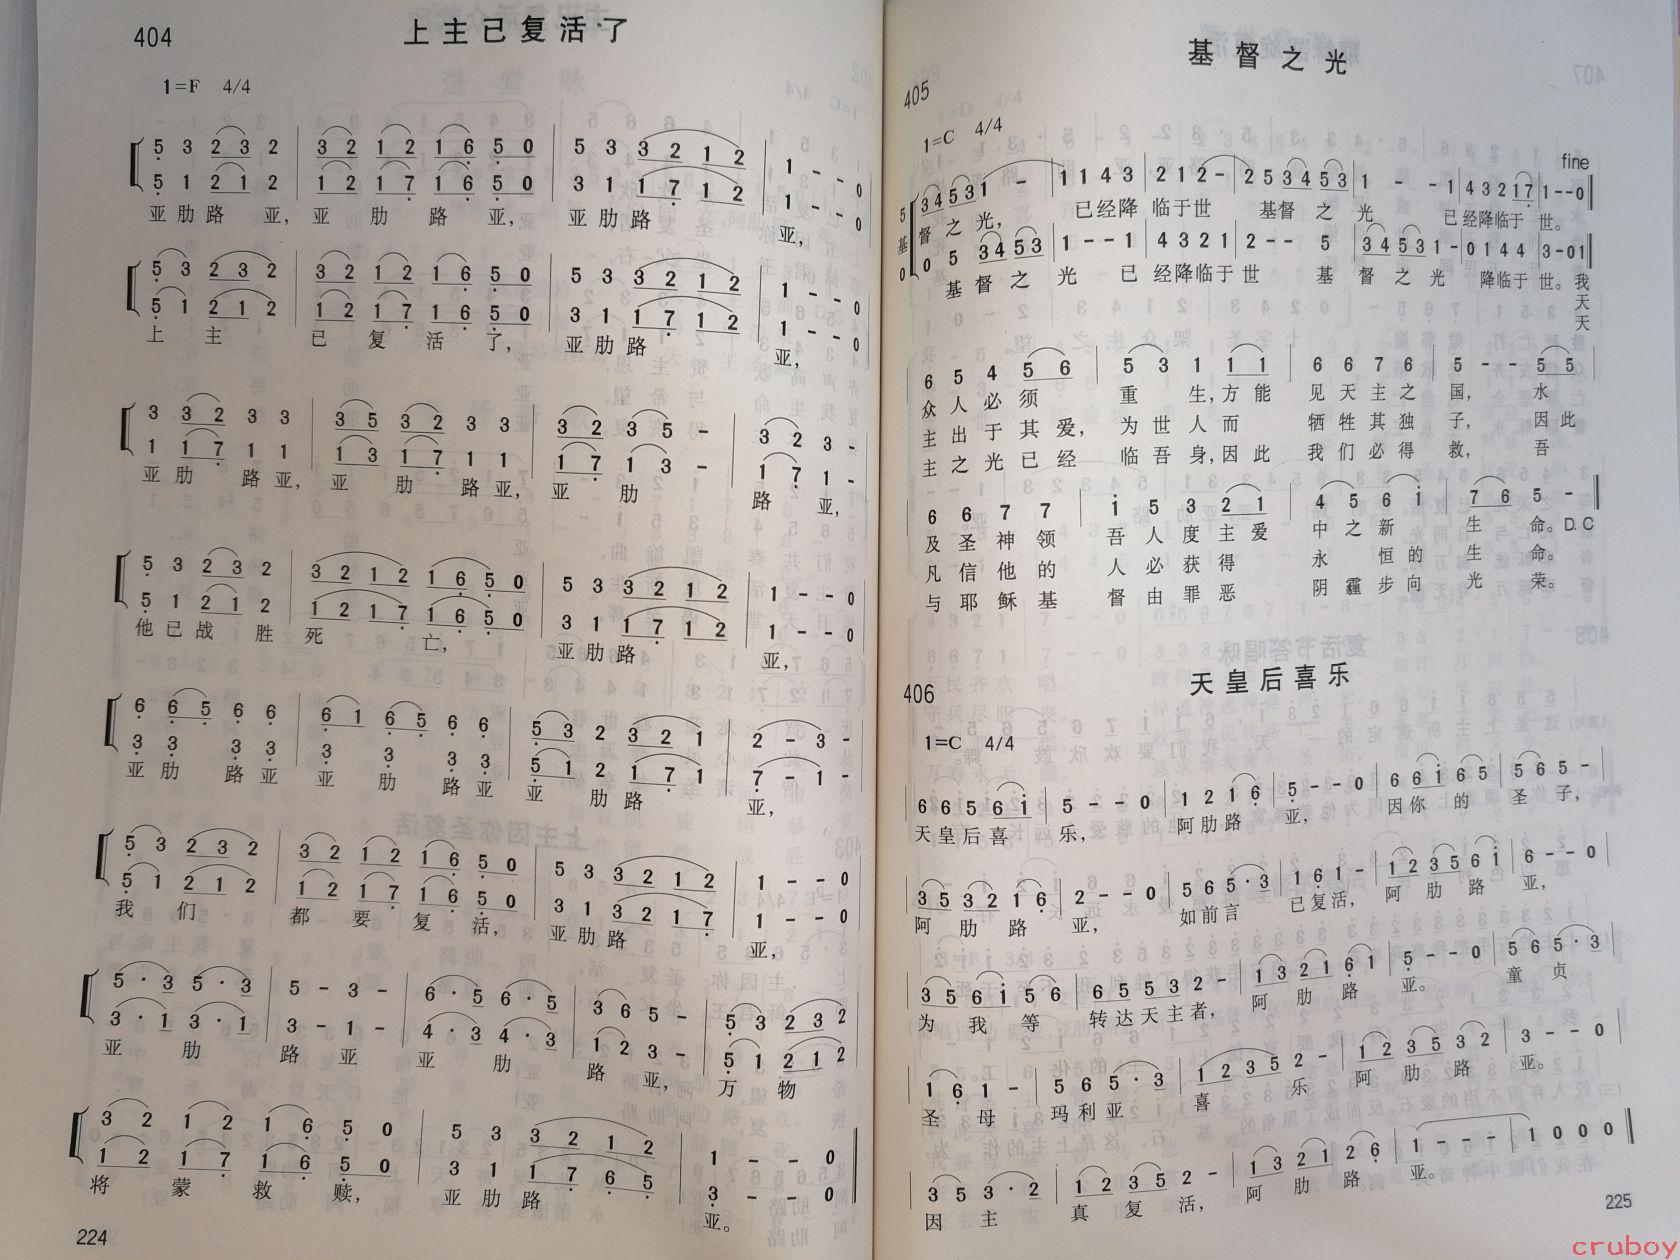 404
上主已复活了
1=F 4/4
5 3 2 3 2 3 2 1 2 1 6 5 0 5 3 3 2 1 2 1 - - 0
5 1 2 1 2 1 2 1 7 1 6 5 0 3 1 1 7 1 2 1 - - 0
亚肋路 亚, 亚 肋 路 亚, 亚肋路 亚,
5 3 2 3 2 3 2 1 2 1 6 5 0 5 3 3 2 1 2 1 - - 0
5 1 2 1 2 1 2 1 7 1 6 5 0 3 1 1 7 1 2 1 - - 0
上 主 已 复 活 了, 亚肋路 亚,
3 3 2 3 3 3 5 3 2 3 3 3 2 3 5 - 3 2 3 -
1 1 7 1 1 1 3 1 7 1 1 1 7 1 3 - 1 7 1 -
亚 肋 路 亚, 亚 肋 路 亚, 亚 肋 路 亚,
5 3 2 3 2 3 2 1 2 1 6 5 0 5 3 3 2 1 2 1 - - 0
5 1 2 1 2 1 2 1 7 1 6 5 0 3 1 1 7 1 2 1 - - 0
他已战 胜 死 亡, 亚肋路 亚,
6 6 5 6 6 6 1 6 5 6 6 5 3 2 3 2 1 2 - 3 -
3 3 3 3 3 3 3 3 5 1 2 1 7 1 7 - 1 -
亚 肋 路 亚 亚 肋 路 亚 亚 肋 路 亚,
5 3 2 3 2 3 2 1 2 1 6 5 0 5 3 3 2 1 2 1 - - 0
5 1 2 1 2 1 2 1 7 1 6 5 0 3 1 3 2 1 7 1 - - 0
我 们 都 要 复 活, 亚肋路 亚,
5 · 3 5 · 3 5 - 3 - 6 · 5 6 · 5 3 6 5 - 5 3 2 3 2
3 · 1 3 · 1 3 - 1 - 4 · 3 4 · 3 1 2 3 - 5 1 2 1 2
亚 肋 路 亚 亚 肋 路 亚, 万 物
3 2 2 1 1 6 5 0 5 3 3 2 1 2 1 - - 0
1 2 1 7 1 6 5 0 3 1 1 7 6 5 3 - - 0
将 蒙 救 赎, 亚肋路 亚。
224
基督之光
405
1=C 4/4
fine
5 3 4 5 3 1 - 1 1 4 3 2 1 2 - 2 5 3 4 5 3 1 - - 1 4 3 2 1 7 1 - - 0
基 督 之 光, 已经降 临于世 基督 之 光 已经降临于 世。
0 0 5 3 4 5 3 1 - - 1 4 3 2 1 2 - - 5 3 4 5 3 1 - 0 1 4 4 3 - 0 1
基 督 之 光 已 经降临于 世 基 督 之 光 降临于 世。我
天
天
6 5 4 5 6 5 3 1 1 1 6 6 7 6 5 - 5 5
众 人 必 须 重 生,方 能 见 天 主 之 国, 水
主 出 于 其 爱, 为 世 人 而 牺 牲 其 独 子, 因 此
主 之 光 已 经 临 吾 身,因 此 我 们 必 得 救, 吾
6 6 7 7 i 5 3 2 1 4 5 6 i 7 6 5 -
及 圣 神 领 吾 人 度 主 爱 中 之 新 生 命。D.C
凡 信 他 的 人 必 获 得 永 恒 的 生 命。
与 耶 稣 基 督 由 罪 恶 阴 霾 步 向 光 荣。
406
天皇后喜乐
1=C 4/4
6 6 5 6 i 5 - - 0 1 2 1 6 5 - - 0 6 6 i 6 5 5 6 5 -
天皇后喜 乐, 阿肋路 亚, 因你 的 圣 子,
3 5 3 2 1 6 2 - - 0 5 6 5 · 3 1 6 1 - 1 2 3 5 6 i 6 - - 0
阿 肋 路 亚, 如前言 已复活, 阿 肋 路 亚,
3 5 6 i 5 6 6 5 5 3 2 - 1 3 2 1 6 1 5 - - 0 5 6 5 · 3
为 我 等 转达天主者, 阿 肋 路 亚。 童 贞
1 6 1 - 5 6 5 · 3 1 2 3 5 2 - 1 2 3 5 3 2 3 - - 0
圣 母 玛利亚 喜 乐 阿 肋 路 亚。
3 5 3 · 2 1 2 3 5 2 - 1 3 2 1 2 6 1 - - - 1 0 0 0
因 主 真 复 活, 阿 肋 路 亚。
225
cruboy